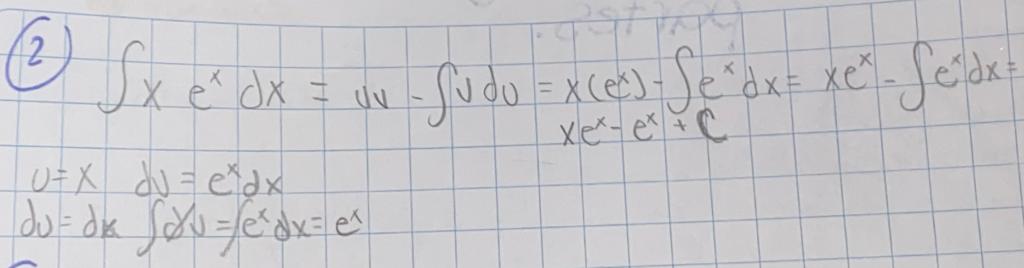 ②
∫ x eˣ dx = uv - ∫ v du = x(eˣ) - ∫ eˣ dx = xeˣ - ∫ eˣ dx =
xeˣ - eˣ + C
u = x   dv = eˣ dx
du = dx   ∫ dv = ∫ eˣ dx = eˣ